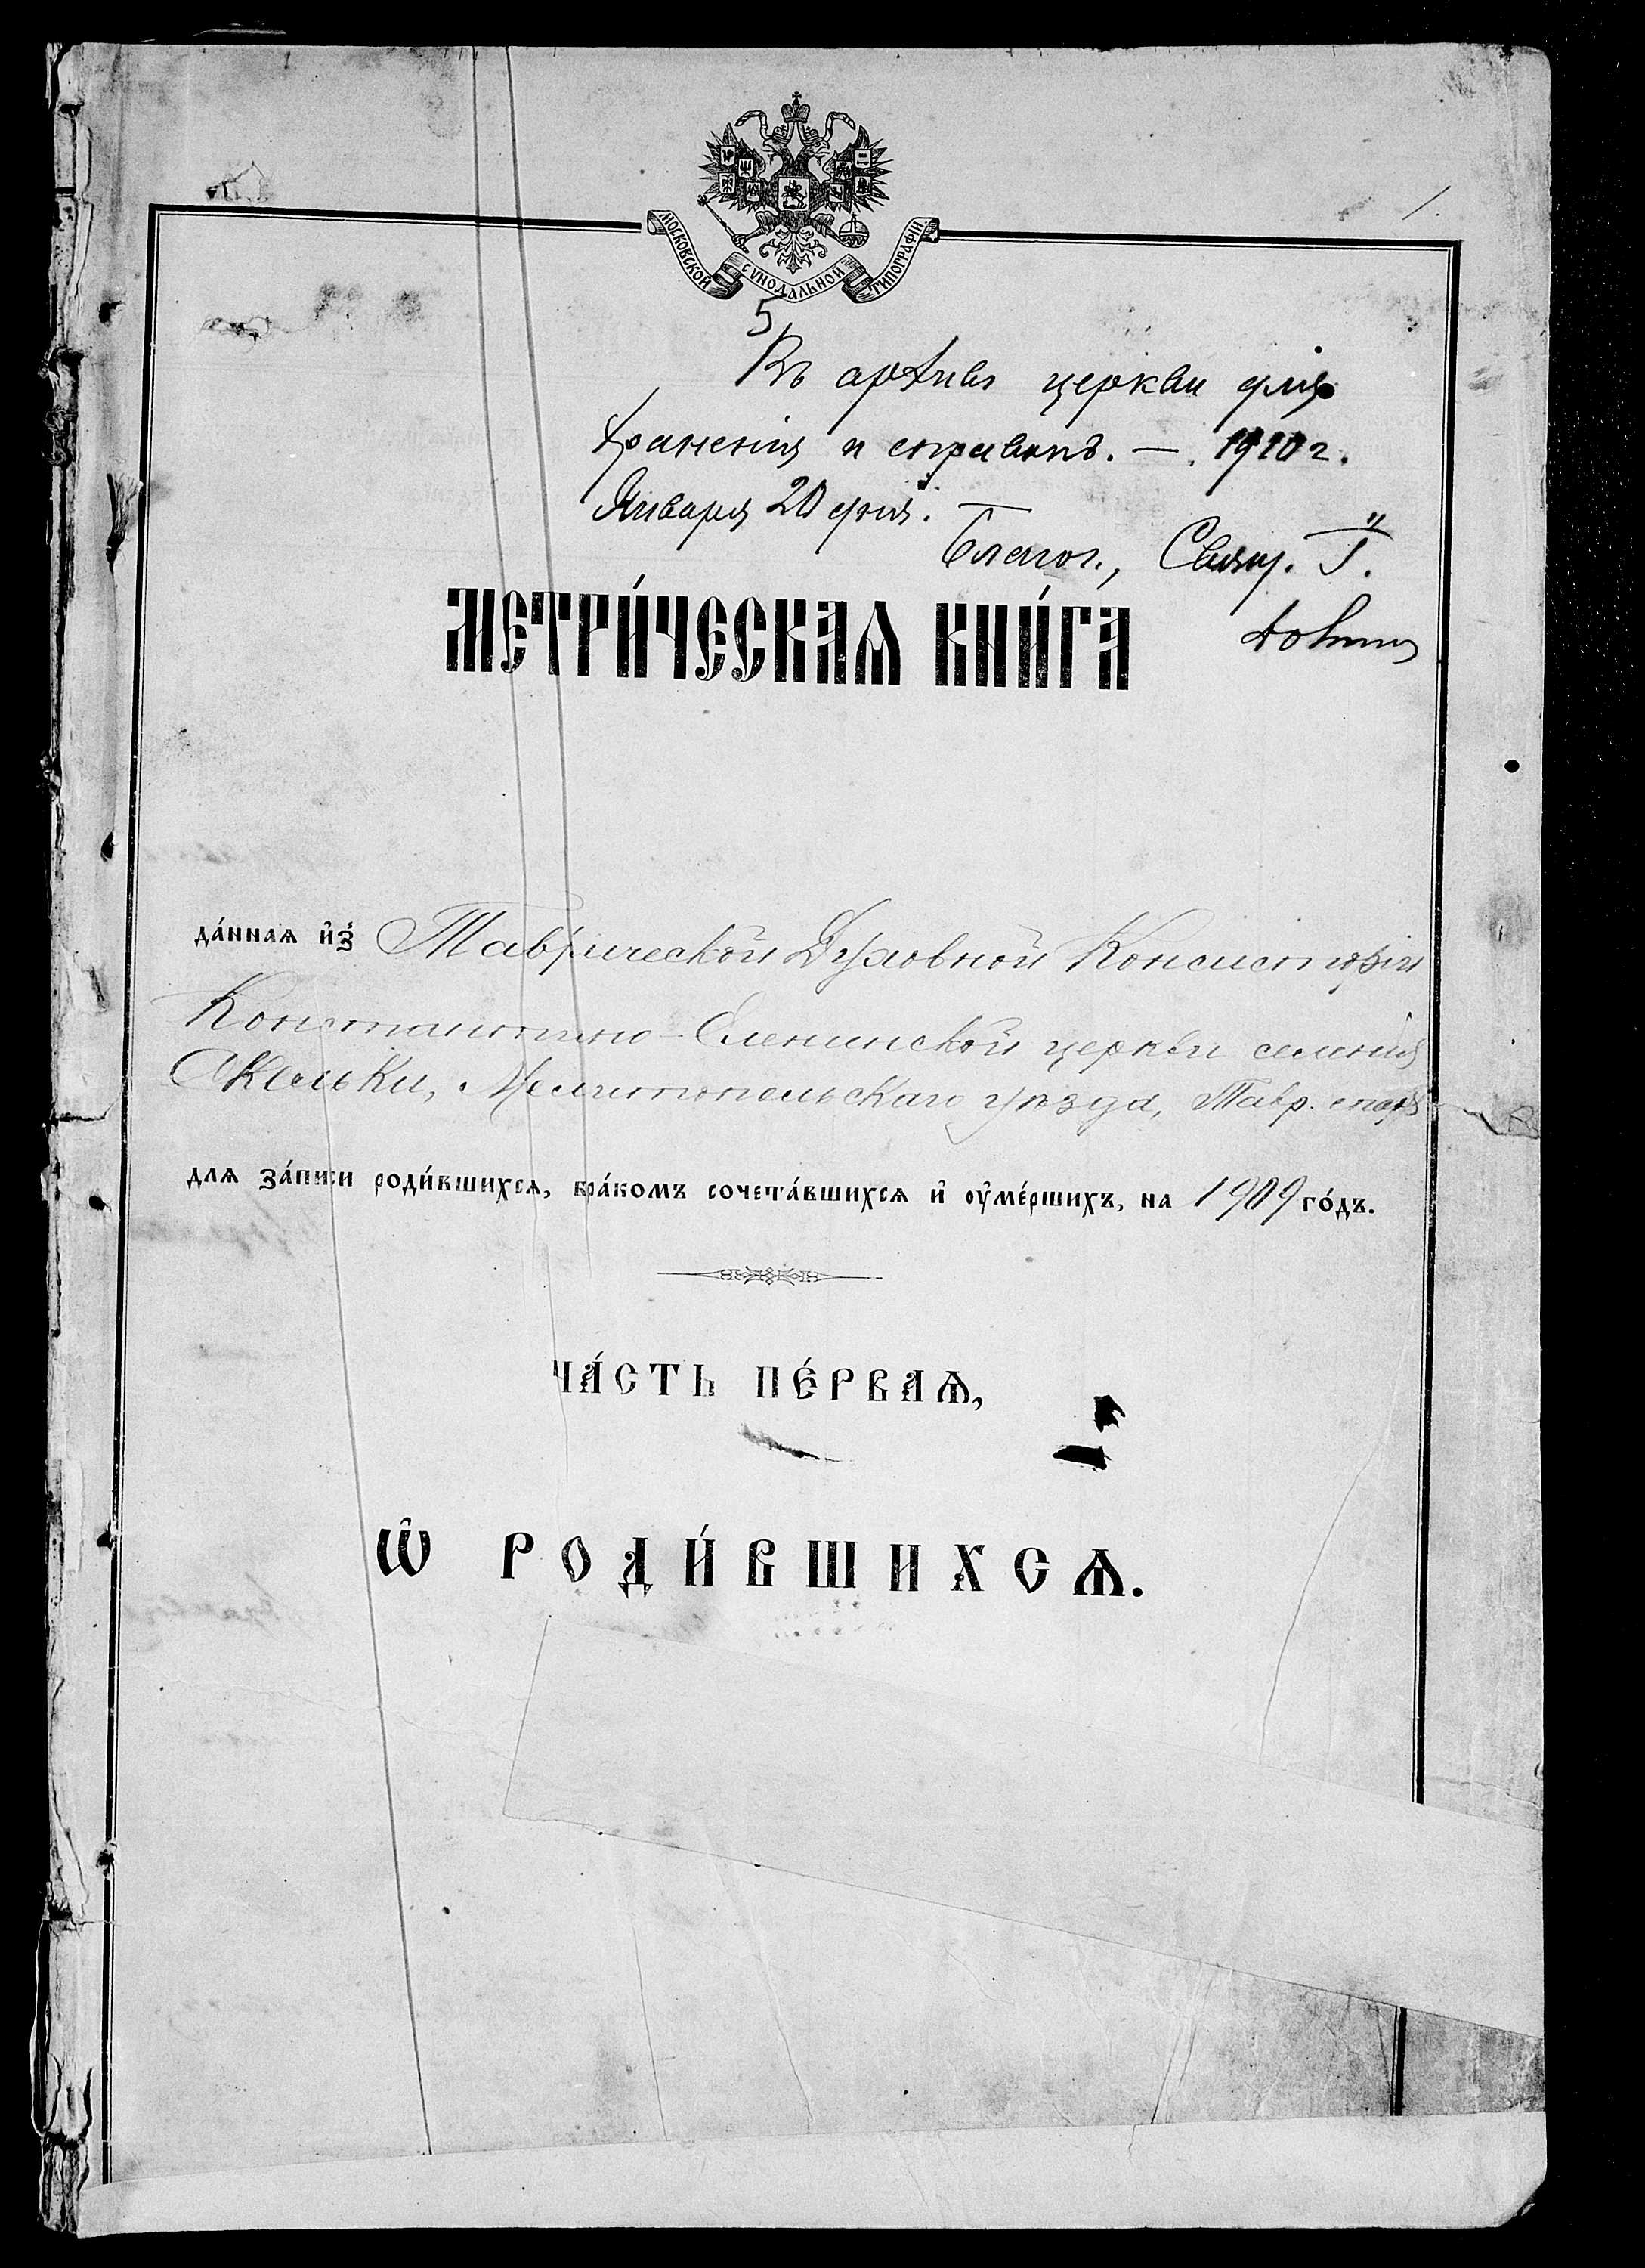 МОСКОВСКОЙ СѴНОДАЛЬНОЙ ТИПОГРАФІИ
1.
5
Въ архивъ церкви для
храненія и справокъ. — 1910 г.
Января 20 дня.
Благоч., Свящ. І.
МЕТРИ́ЧЕСКАѦ КНИ́ГА
да́ннаѧ и҆з̾ Таврической Духовной Консисторіи
Константино-Еленинской церкви селенія
Скельки, Мелитопольскаго уѣзда, Тавр. епарх
длѧ за́писи роди́вшихсѧ, бра́комъ сочета́вшихсѧ и҆ оу҆ме́ршихъ, на 1909 го́дъ.
ЧА́СТЬ ПЕ́РВАѦ,
Ѡ҆ РОДИ́ВШИХСѦ.